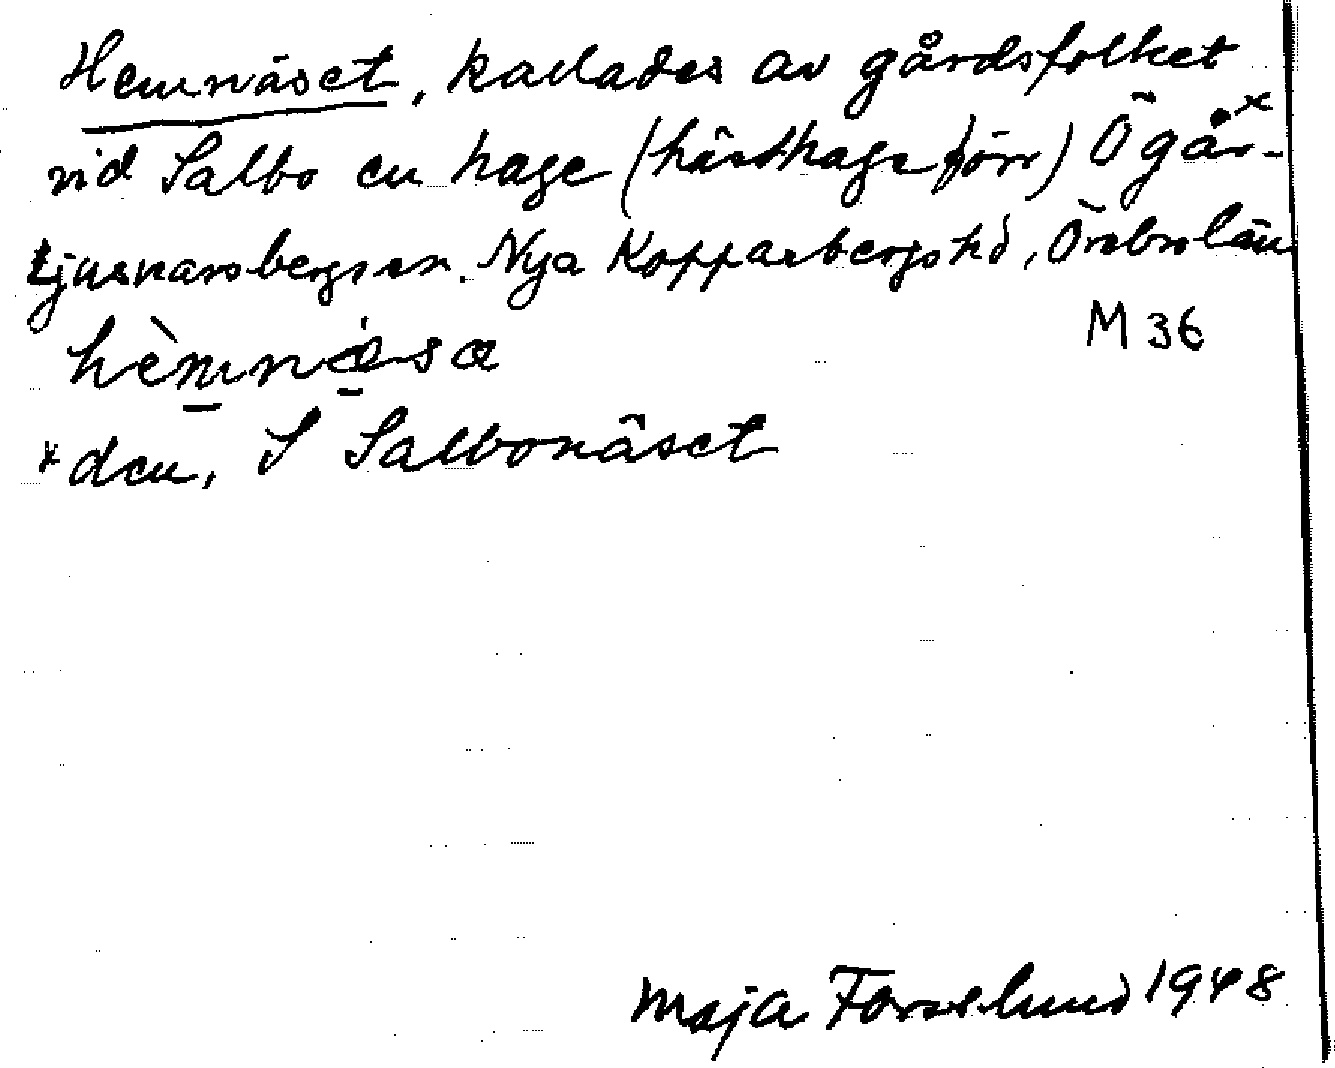 Hemnäset, kallades av gårdsfolket
vid Salbo en hage (hästhage förr) Ö går-ˣ
Ljusnarsbergs sn. Nya Kopparbergs hd, Örebro län
M 36
hèmnǽsæ
ˣ den, I Salbonäset
Maja Forsslund 1948